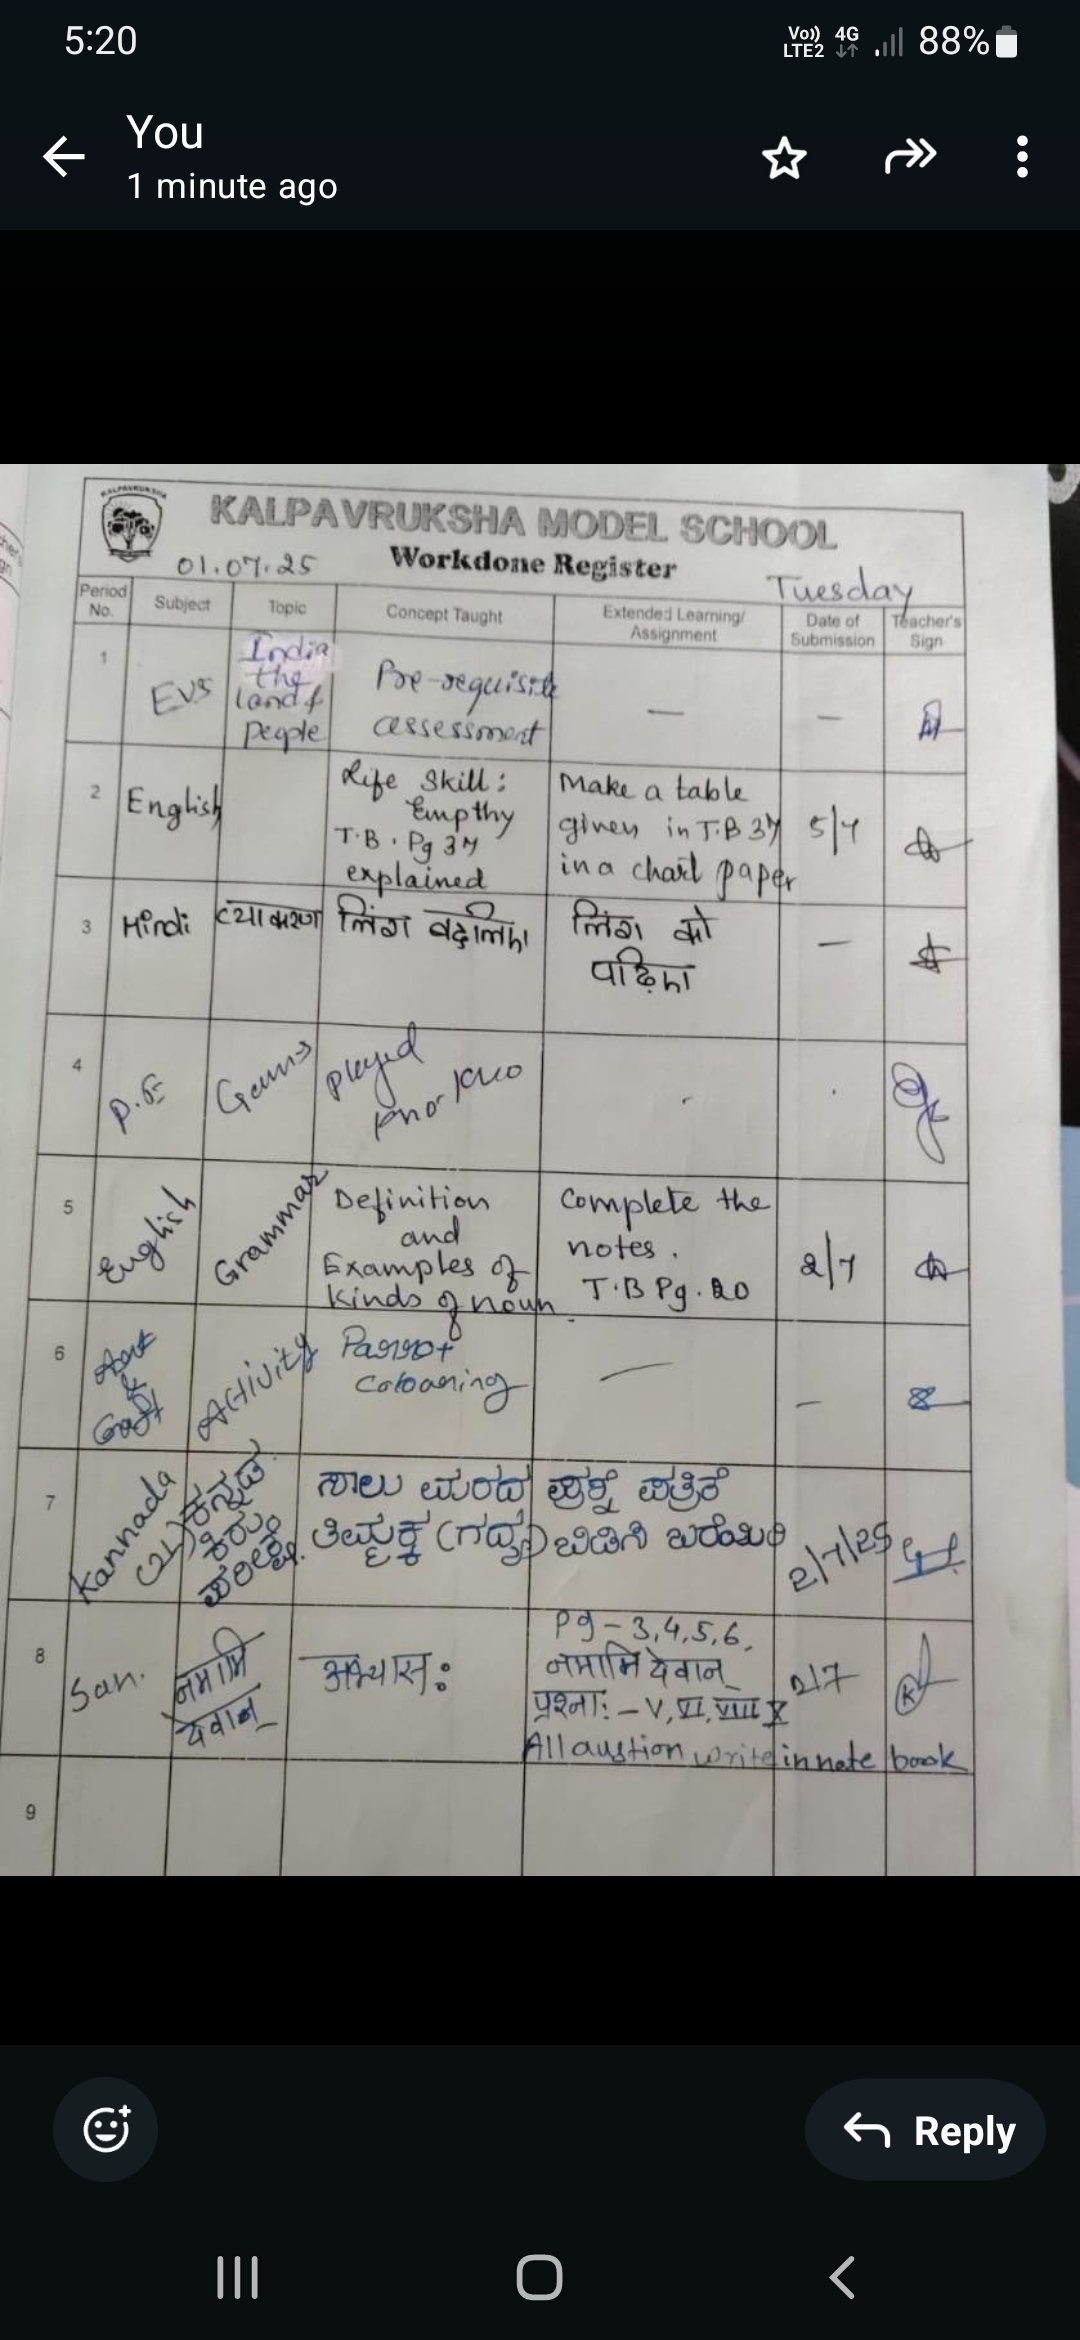 5:20
Vo)) 4G
LTE2
88%
You
1 minute ago
KALPAVRUKSHA
KALPAVRUKSHA MODEL SCHOOL
Workdone Register
01.07.25
Tuesday
Period No.
Subject
Topic
Concept Taught
Extended Learning/ Assignment
Date of Submission
Teacher's Sign
1
EVS
India
the
land &
people
Pre-requisite
assessment
—
—
2
English
Life Skill:
Empthy
T.B. Pg 37
explained
Make a table
given in T.B 37
in a chart paper
5/7
3
Hindi
व्याकरण
लिंग बदलिए।
लिंग को
पढ़िए।
—
4
P.E
Games
Played
Kho-Kho
5
English
Grammar
Definition
and
Examples of
Kinds of noun
Complete the
notes.
T.B Pg. 20
2/7
6
&
Activity
Parrot
—
—
7
Kannada
(2L)
ಕನ್ನಡ
ಕಿರು
ಪರೀಕ್ಷೆ
ಸಾಲು ಮರದ
ತಿಮ್ಮಕ್ಕ (ಗದ್ಯ)
ಪ್ರಶ್ನೆ ಪತ್ರಿಕೆ
ಬಿಡಿಸಿ
2/7/25
8
San.
नमामि
देवान्
अभ्यासः
Pg - 3,4,5,6,
नमामि देवान्
प्रश्नाः - V, VI, VIII X
All austion write in note book
2/7
9
Reply